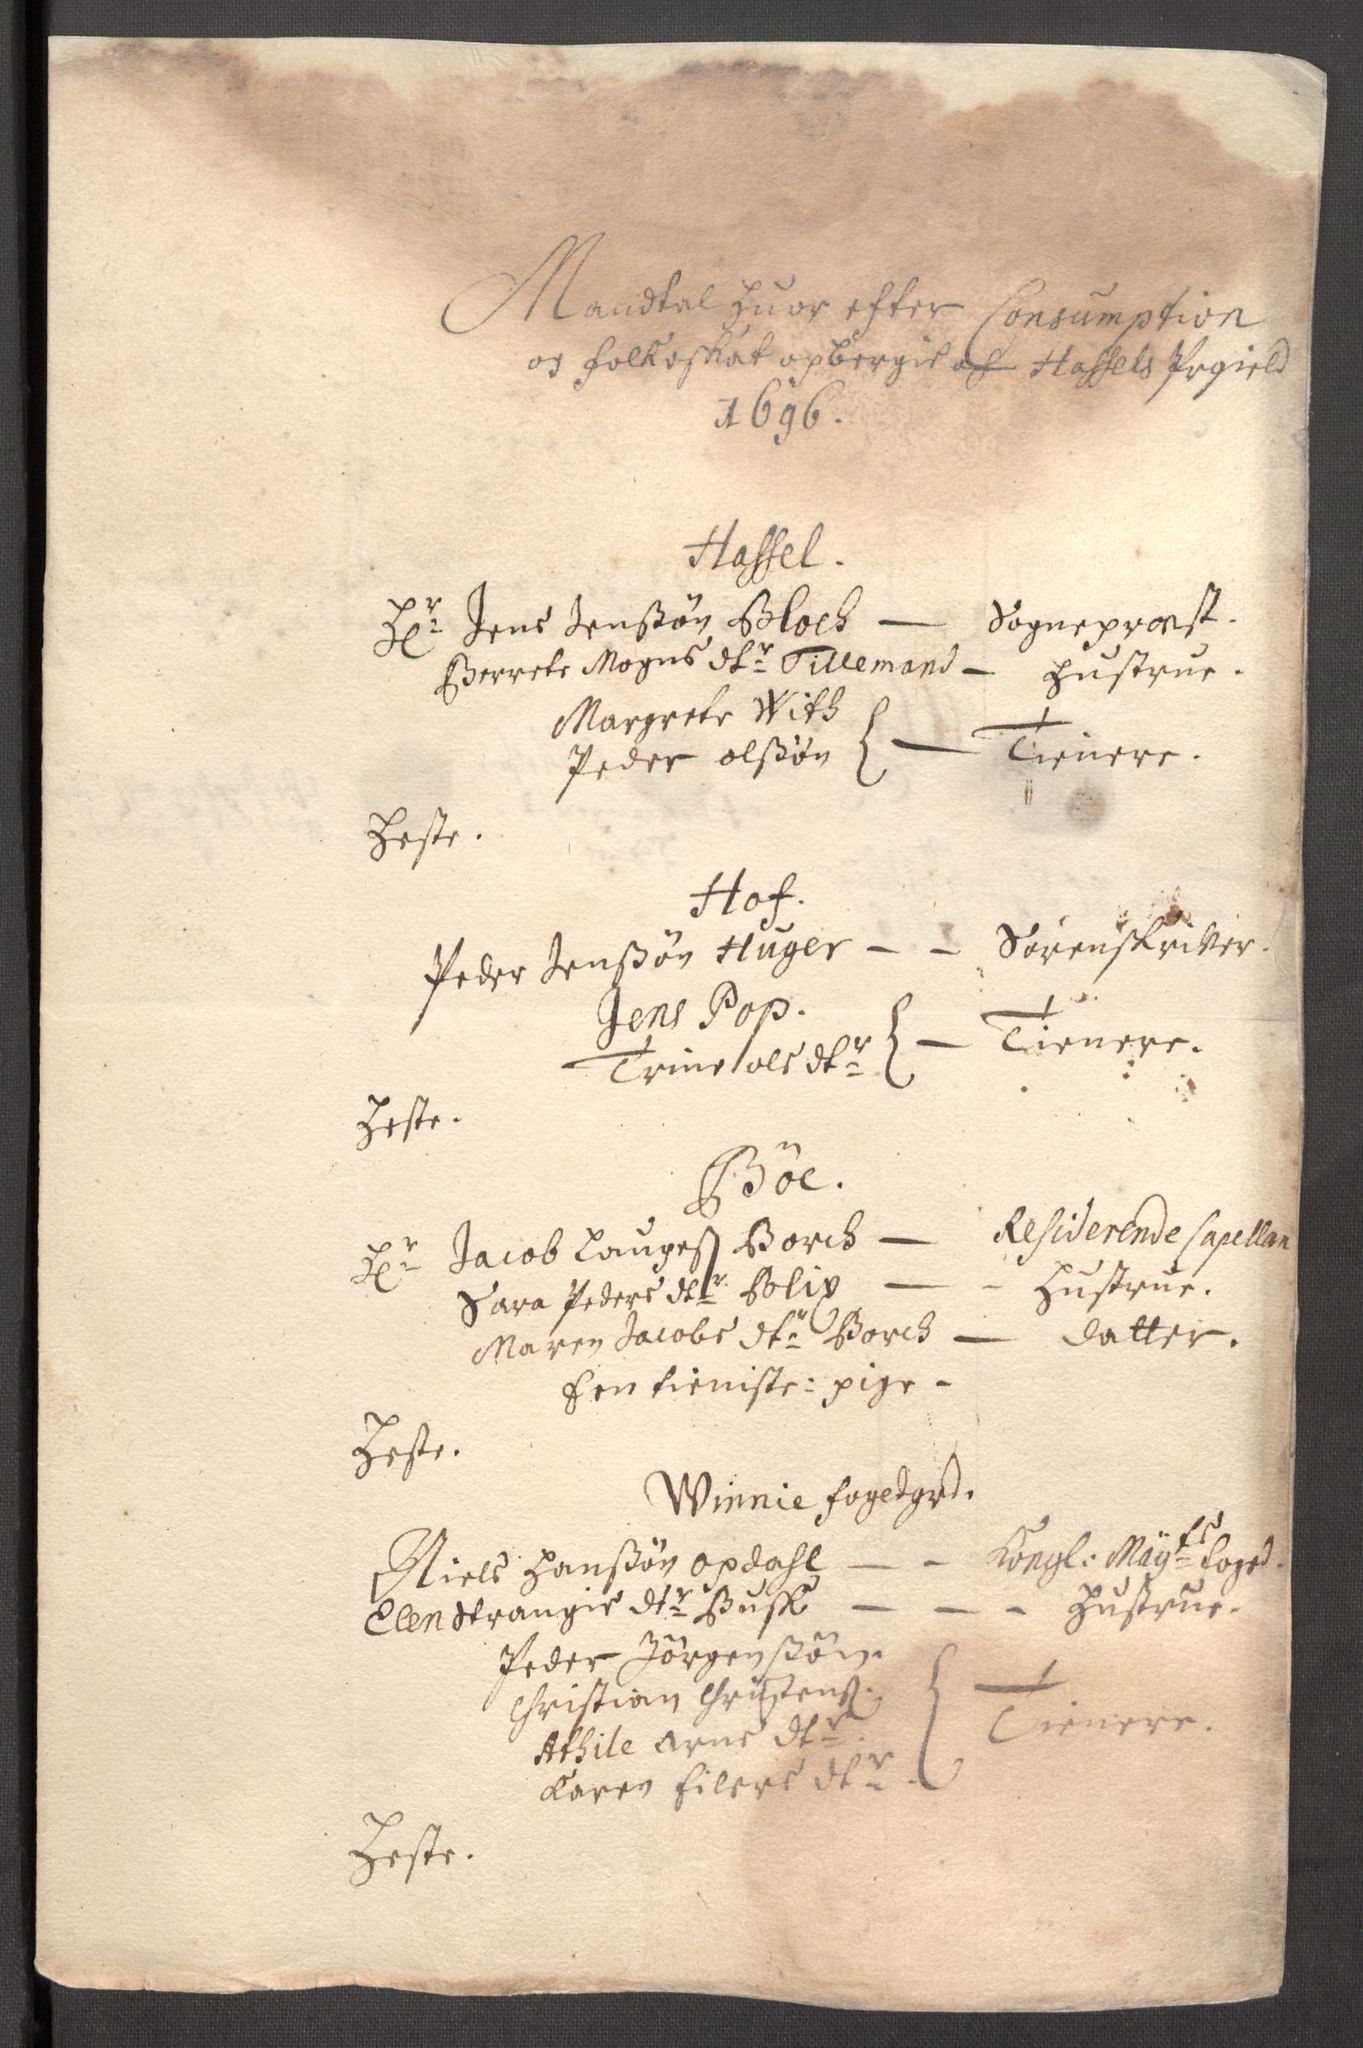 Mandtal huor efter Consumption
og folkeskat opbergis af Hassels Prgield
1696.
Hassel.
Hr. Jens Jenßøn Bloch — Sogneprest.
Berrete Mogns dtr. Tillemand — hustrue.
Margrete With
Peder olßøn } — Tienere.
Heste.
Hof.
Peder Jenßøn Huger — — Sorenskriver.
Jens Pop.
Trine ols dtr } — Tienere.
Heste.
Böe.
Hr. Jacob Laugeß Borch — Residerende Capellan
Sara Peders dtr. Blix — — hustrue.
Maren Jacobs dtr Borch — datter.
Een tieniste: pige -
Heste.
Winnie fogedgrd.
Niels Hanßøn opdahl — — Kongl: Mayts foged.
Elen Strangis dtr Busk — — — hustrue.
Peder Jörgenßön.
Christian Christenß.
Athile Arns dtr. } — Tienere.
Karen Eilers dtr.
Heste.